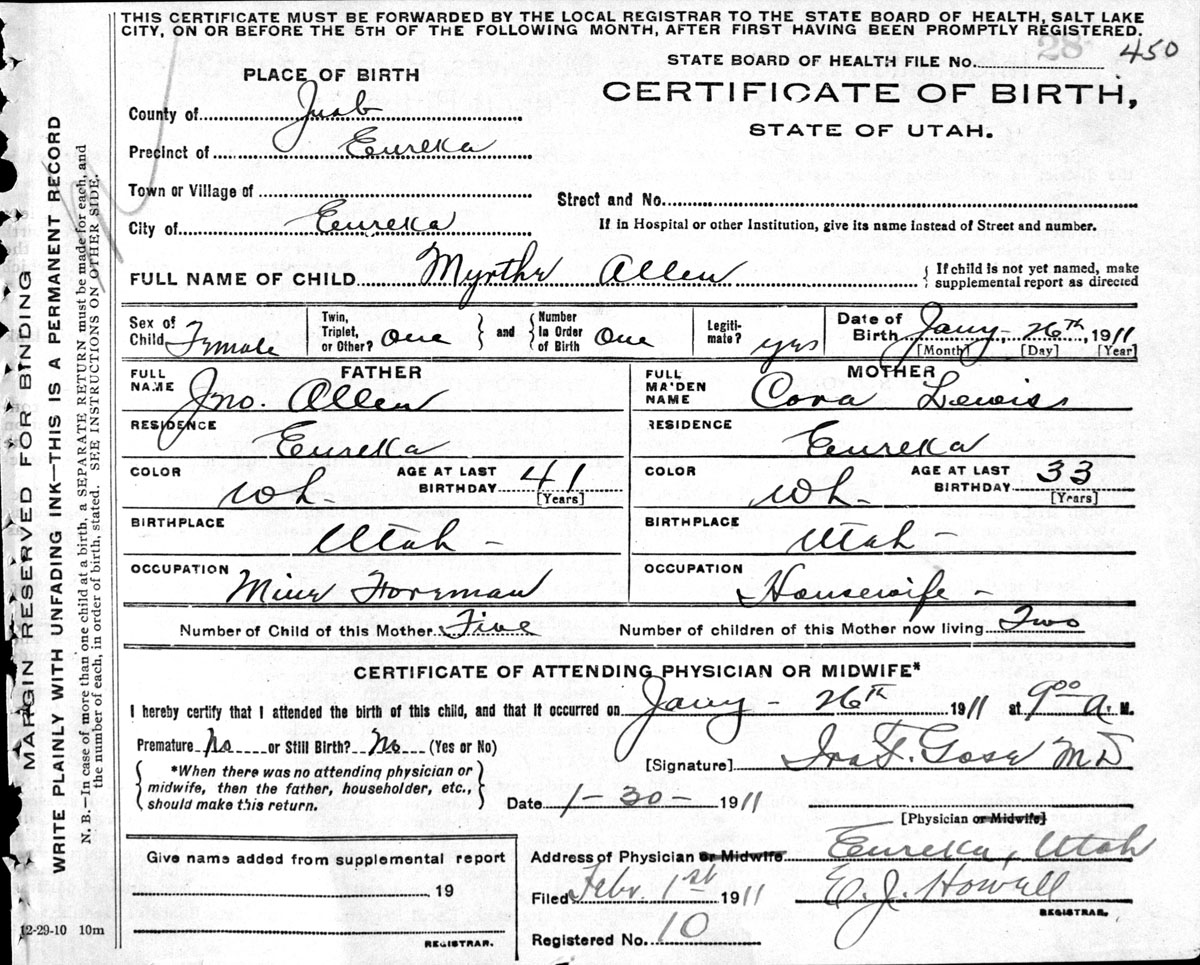 THIS CERTIFICATE MUST BE FORWARDED BY THE LOCAL REGISTRAR TO THE STATE BOARD OF HEALTH, SALT LAKE
CITY, ON OR BEFORE THE 5TH OF THE FOLLOWING MONTH, AFTER FIRST HAVING BEEN PROMPTLY REGISTERED.
STATE BOARD OF HEALTH FILE No. 28 450
PLACE OF BIRTH
CERTIFICATE OF BIRTH,
STATE OF UTAH.
County of Juab
Precinct of Eureka
Town or Village of
Street and No.
City of Eureka
If in Hospital or other Institution, give its name instead of Street and number.
FULL NAME OF CHILD Myrthe Allen { If child is not yet named, make
supplemental report as directed
Sex of Child Female
Twin, Triplet, or Other? One } and { Number In Order of Birth One
Legitimate? yes
Date of Birth Jany, 26th, 1911
[Month] [Day] [Year]
FATHER MOTHER
FULL NAME Jno. Allen
FULL MAIDEN NAME Cora Lewis
RESIDENCE Eureka
RESIDENCE Eureka
COLOR Wh AGE AT LAST BIRTHDAY 41 [Years]
COLOR Wh AGE AT LAST BIRTHDAY 33 [Years]
BIRTHPLACE Utah -
BIRTHPLACE Utah -
OCCUPATION Mine Foreman
OCCUPATION Housewife -
Number of Child of this Mother Five Number of children of this Mother now living Two
CERTIFICATE OF ATTENDING PHYSICIAN OR MIDWIFE*
I hereby certify that I attended the birth of this child, and that it occurred on Jany - 26th 1911 at 9 00 A. M.
Premature No or Still Birth? No (Yes or No)
[Signature] Ira F. Gose MD
{ *When there was no attending physician or
midwife, then the father, householder, etc.,
should make this return. }
Date 1-30- 1911
[Physician or Midwife]
Give name added from supplemental report
19
REGISTRAR.
Address of Physician or Midwife Eureka, Utah
Filed Febr. 1st 1911 E. J. Howell
REGISTRAR.
Registered No. 10
12-29-10 10m
MARGIN RESERVED FOR BINDING
WRITE PLAINLY WITH UNFADING INK—THIS IS A PERMANENT RECORD
N. B.—In case of more than one child at a birth, a SEPARATE RETURN must be made for each, and
the number of each, in order of birth, stated. SEE INSTRUCTIONS ON OTHER SIDE.